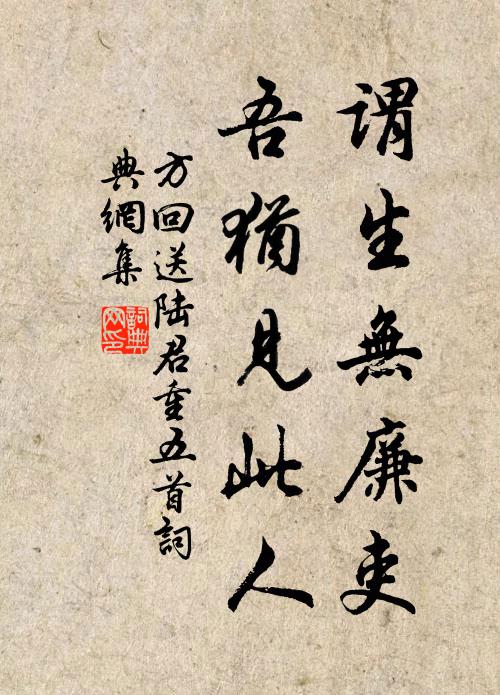 謂生無廉吏
吾猶見此人
方回送陆君重五首詞
典網集
詞典
网印